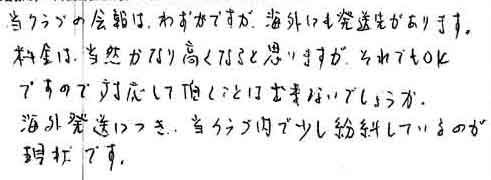 当クラブの会報は、わずかですが、海外にも発送先があります。
料金は、当然かなり高くなると思いますが、それでもOK
ですので対応して頂くことは出来ないでしょうか。
海外発送につき、当クラブ内で少し紛糾しているのが
現状です。